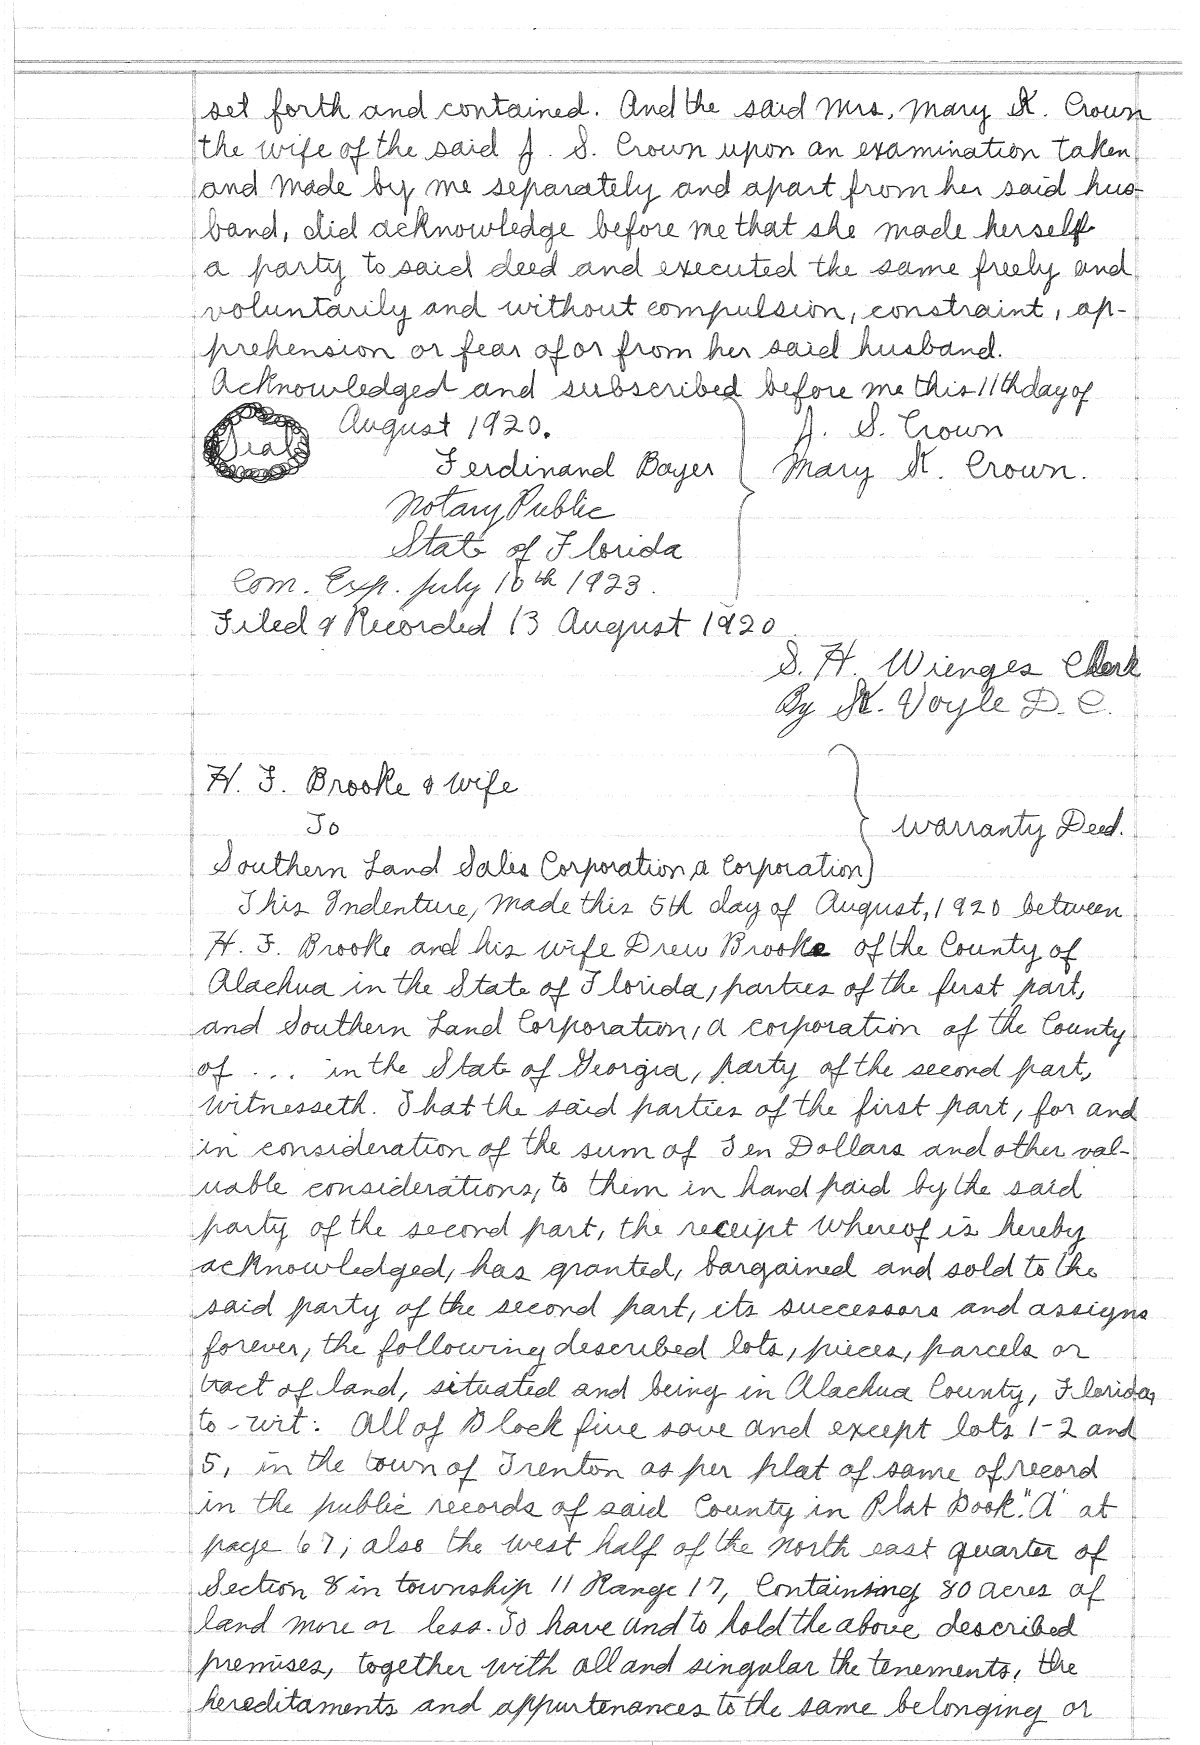 set forth and contained. And the said Mrs, Mary K. Crown
the wife of the said J. S. Crown upon an examination taken
and made by me separately and apart from her said hus-
band, did acknowledge before me that she made herself
a party to said deed and executed the same freely and
voluntarily and without compulsion, constraint, ap-
prehension or fear of or from her said husband.
Acknowledged and subscribed before me this 11th day of
Seal August 1920. J. S. Crown
Ferdinand Bayer Mary K. Crown.
Notary Public
State of Florida
Com. Exp. July 10th 1923.
Filed & Recorded 13 August 1920
S. H. Wienges Clerk
By K. Voyle D. C.
H. F. Brooke & wife
To Warranty Deed.
Southern Land Sales Corporation, a Corporation
This Indenture, Made this 5th day of August, 1920 between
H. F. Brooke and his wife Drew Brooke of the County of
Alachua in the State of Florida, parties of the first part,
and Southern Land Corporation, a corporation of the County
of ... in the State of Georgia, party of the second part,
Witnesseth. That the said parties of the first part, for and
in consideration of the sum of Ten Dollars and other val-
uable considerations, to them in hand paid by the said
party of the second part, the receipt whereof is hereby
acknowledged, has granted, bargained and sold to the
said party of the second part, its successors and assigns
forever, the following described lots, pieces, parcels or
tract of land, situated and being in Alachua County, Florida,
to-wit: All of Block five save and except lots 1-2 and
5, in the town of Trenton as per plat of same of record
in the public records of said County in Plat Book "A" at
page 67; also the west half of the north east quarter of
Section 8 in township 11 Range 17, Containing 80 acres of
land more or less. To have and to hold the above described
premises, together with all and singular the tenements, the
hereditaments and appurtenances to the same belonging or